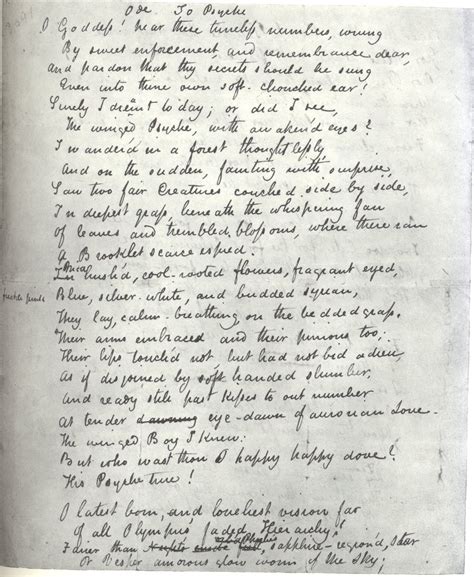 Ode To Psyche
O Goddess! hear these tuneless numbers, wrung
By sweet enforcement, and remembrance dear,
And pardon that thy secrets should be sung
Even into thine own soft-chonched ear!
Surely I dreamt to day; or did I see,
The winged Psyche, with awaken'd eyes?
I wander'd in a forest thoughtlessly
And on the sudden, fainting with surprise,
Saw two fair Creatures couched side by side,
In deepest grass, beneath the whisp'ring fan
of leaves and trembled blossoms, where there ran
A Brooklet scarce espied.
'Mid hush'd, cool-rooted flowers, fragrant eyed,
Blue, silver-white, and budded syrian,
They lay, calm-breathing on the bedded grass.
Their arms embraced and their pinions too;
Their lips touch'd not but had not bid adieu,
As if disjoined by soft handed slumber,
And ready still past kisses to out number
At tender dawning eye-dawn of aurorian Love.
The winged Boy I knew:
But who wast thou O happy happy dove?
His Psyche true!
O latest born, and loveliest vision far
Of all Olympus faded Hierarchy!
Fairer than Phoebe's sapphire-region'd star
Or Vesper amorous glow worm of the sky;